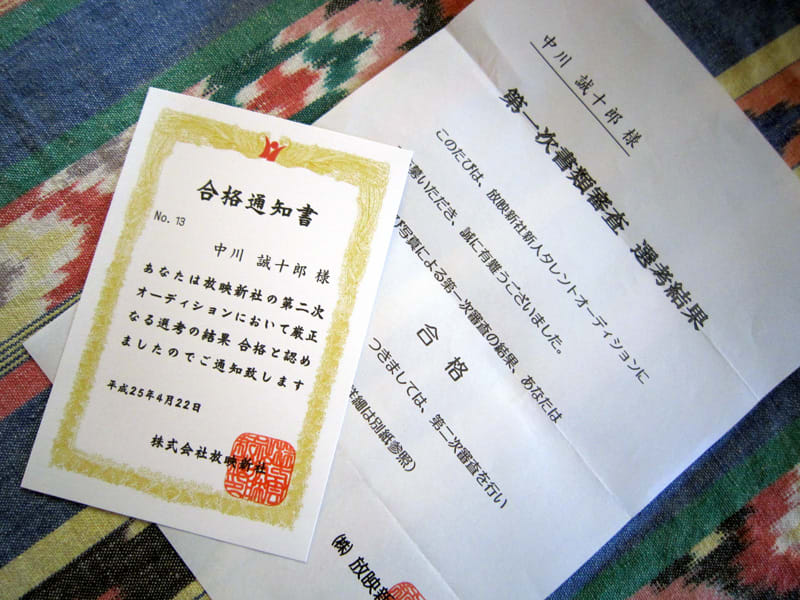 合格通知書
No. 13
中川 誠十郎 様
あなたは放映新社の第二次
オーディションにおいて厳正
なる選考の結果 合格と認め
ましたのでご通知致します
平成25年4月22日
株式会社放映新社
中川 誠十郎 様
第一次書類審査 選考結果
このたびは、放映新社新人タレントオーディションに
募いただき、誠に有難うございました。
び写真による第一次審査の結果、あなたは
合 格
つきましては、第二次審査を行い
詳細は別紙参照)
㈱ 放映新